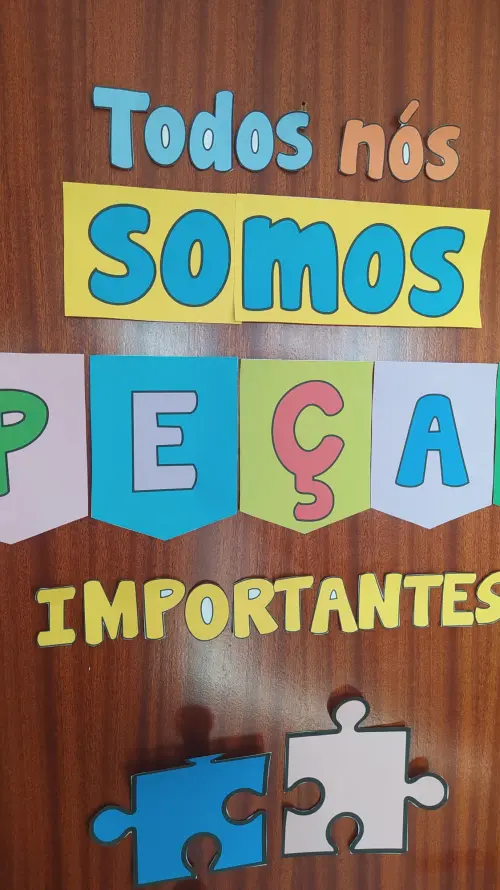 Todos nós
SOMOS
PEÇA
IMPORTANTES